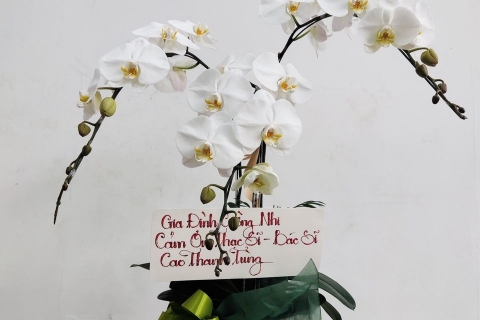 Gia Đình Nhi
Cảm Ơn Thạc Sĩ - Bác Sĩ
Cao Thanh Tùng